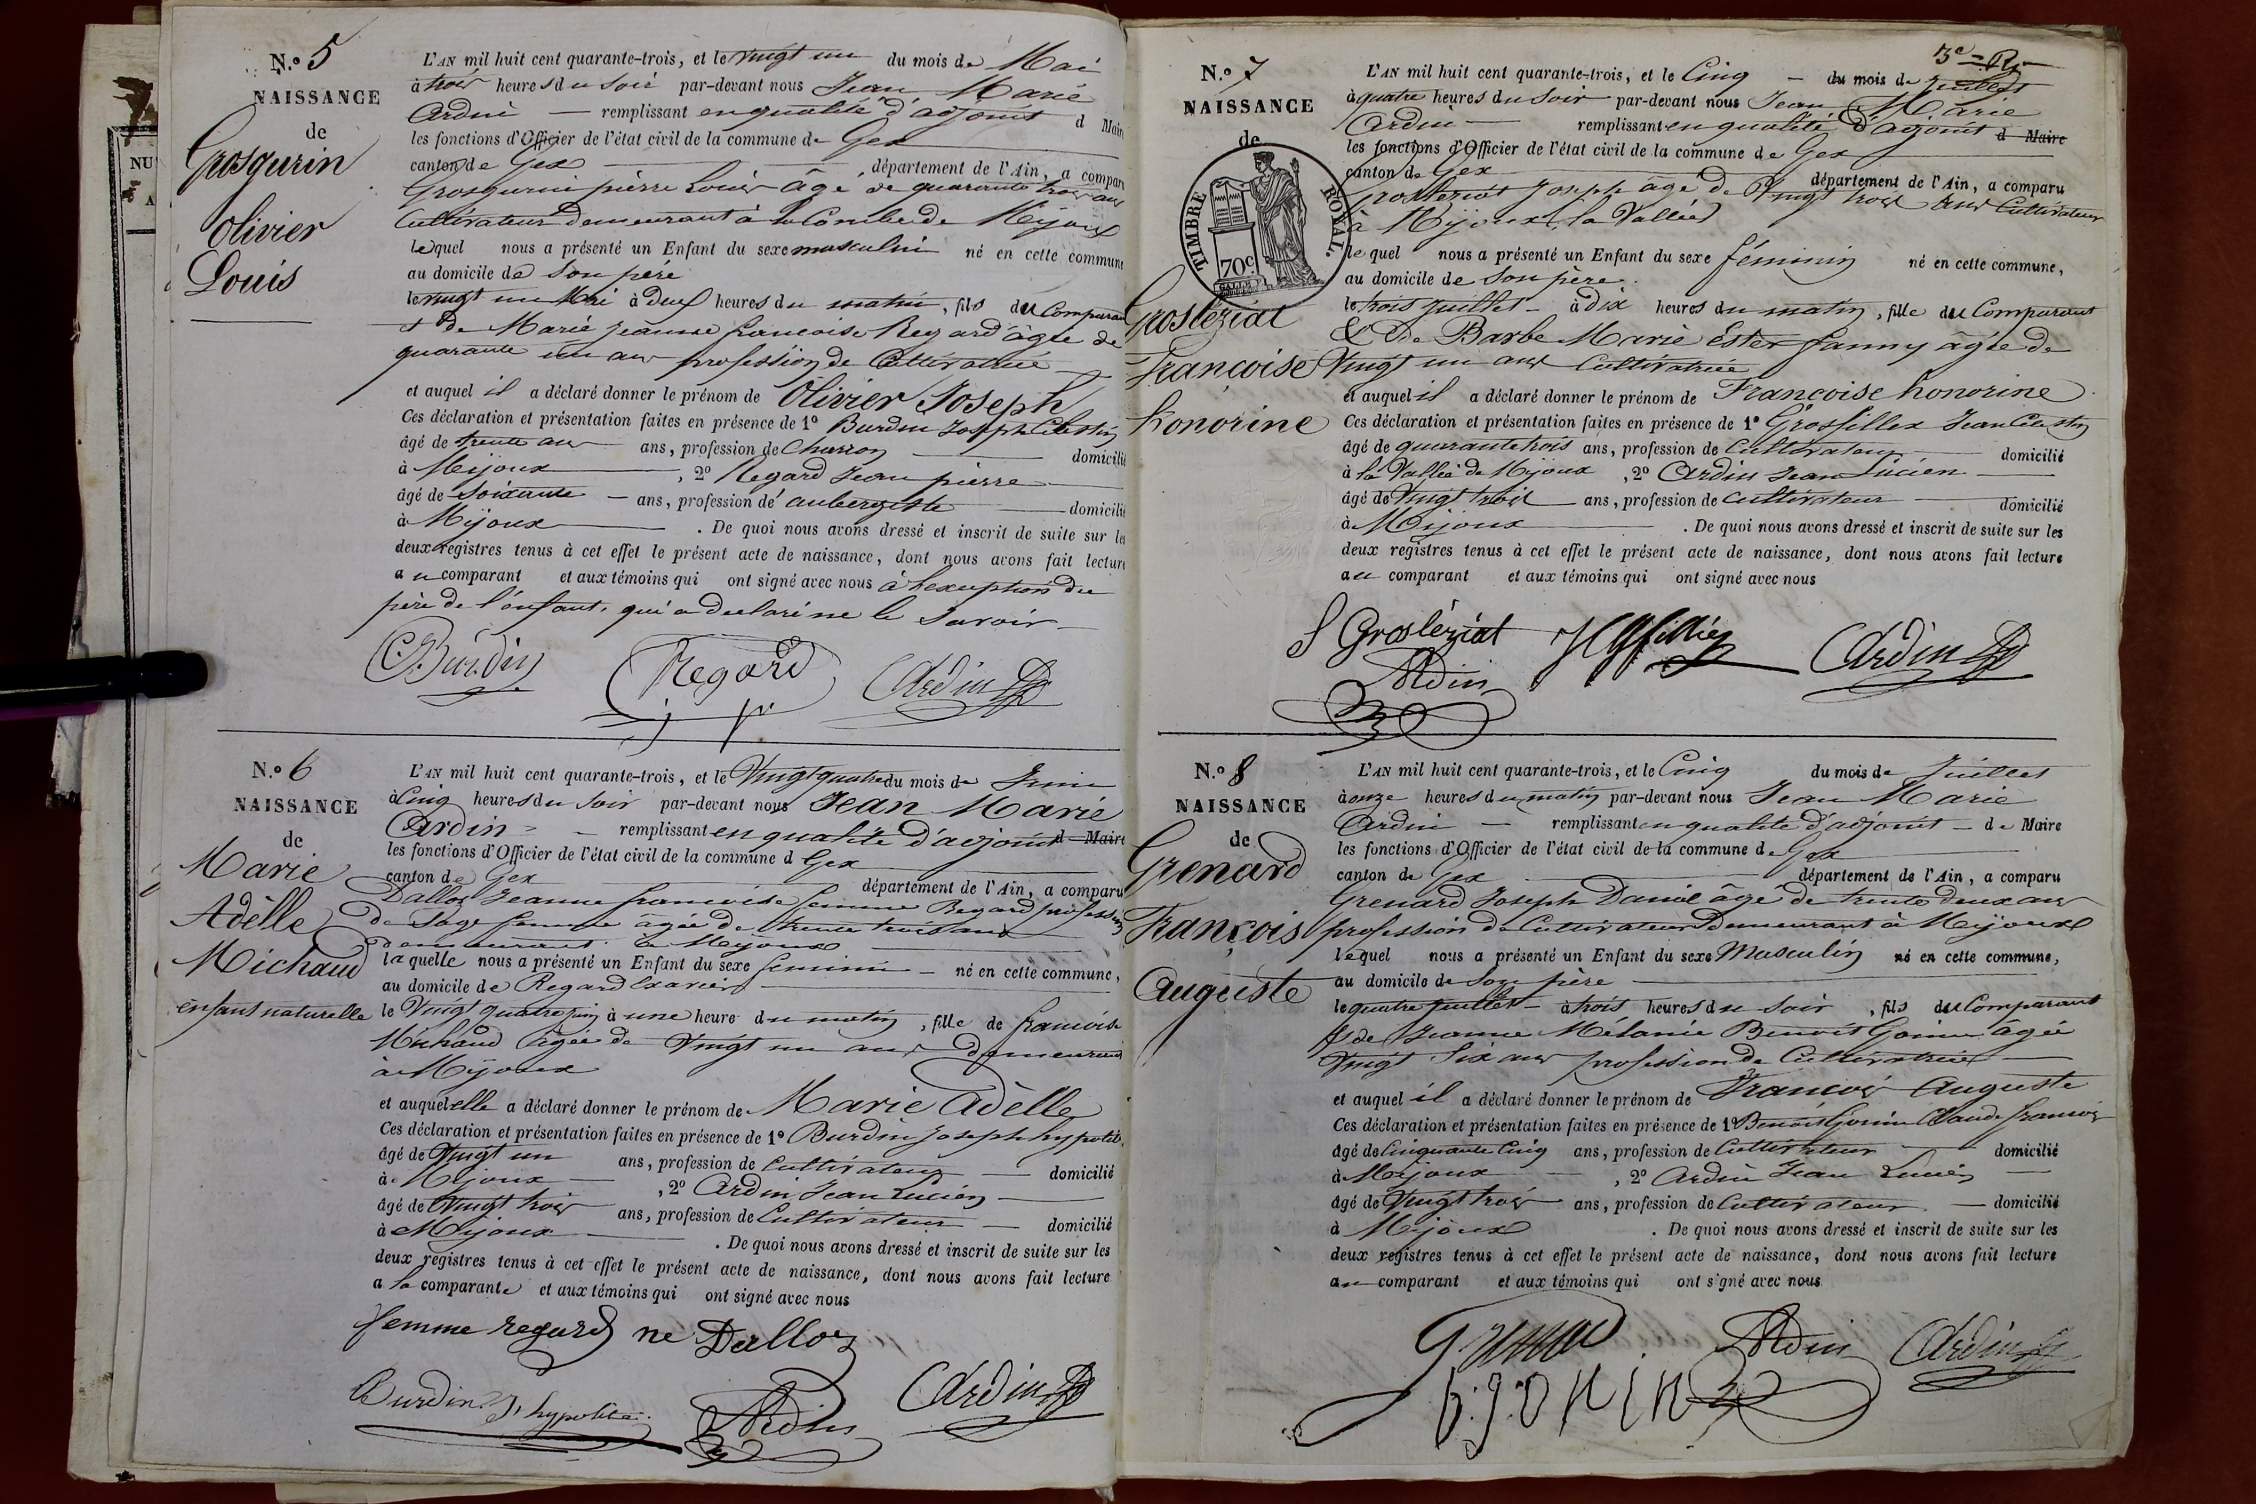 N.º 5
NAISSANCE
de
Grosgurin
Olivier
Louis
L'AN mil huit cent quarante-trois, et le vingt un du mois de Mai
à trois heures du soir par-devant nous Jean Marie
Ardin — remplissant en qualité d'adjoint d Maire
les fonctions d'Officier de l'état civil de la commune de Gex
canton de Gex département de l'Ain, a comparu
Grosgurin pierre Louis âgé de quarante trois ans
Cultivateur demeurant à la Combe de Mijoux
lequel nous a présenté un Enfant du sexe masculin né en cette commune
au domicile de son père
le vingt un Mai à deux heures du matin, fils du Comparant
& de Marie jeanne francoise Regard âgée de
quarante un ans profession de Cultivatrice
et auquel il a déclaré donner le prénom de Olivier Joseph
Ces déclaration et présentation faites en présence de 1º Burdin Joseph Célestin
âgé de trente ans ans, profession de Charron domicilié
à Mijoux, 2º Regard Jean pierre
âgé de soixante — ans, profession de aubergiste domicilié
à Mijoux. De quoi nous avons dressé et inscrit de suite sur les
deux registres tenus à cet effet le présent acte de naissance, dont nous avons fait lecture
au comparant et aux témoins qui ont signé avec nous à l'exception du
père de l'enfant, qui a declaré ne le savoir
C. Burdin Regard Ardin
N.º 6
NAISSANCE
de
Marie
Adèlle
Michaud
enfant naturelle
L'AN mil huit cent quarante-trois, et le Vingt quatre du mois de Juin
à Cinq heures du soir par-devant nous Jean Marie
Ardin — remplissant en qualité d'adjoint d Maire
les fonctions d'Officier de l'état civil de la commune d Gex
canton de Gex département de l'Ain, a comparu
Dalloz Jeanne francoise femme Regard profession
de Sage femme âgée de trente trois ans
demeurant à Mijoux
laquelle nous a présenté un Enfant du sexe feminin — né en cette commune,
au domicile de Regard Exavier
le Vingt quatre juin à une heure du matin, fille de francoise
Michaud âgée de Vingt un ans demeurant
à Mijoux
et auquel elle a déclaré donner le prénom de Marie Adèlle
Ces déclaration et présentation faites en présence de 1º Burdin Joseph hypolite
âgé de Vingt un ans, profession de Cultivateur — domicilié
à Mijoux, 2º Ardin Jean Lucien
âgé de Vingt trois ans, profession de Cultivateur — domicilié
à Mijoux. De quoi nous avons dressé et inscrit de suite sur les
deux registres tenus à cet effet le présent acte de naissance, dont nous avons fait lecture
a la comparante et aux témoins qui ont signé avec nous
femme regard ne Dalloz
Burdin J. hypolite Ardin Ardin
3e
N.º 7
NAISSANCE
de
TIMBRE ROYAL.
70c.
Grosléziat
Françoise
honorine
L'AN mil huit cent quarante-trois, et le Cinq — du mois de juillet
à quatre heures du soir par-devant nous Jean Marie
Ardin — remplissant en qualité d'adjoint d Maire
les fonctions d'Officier de l'état civil de la commune de Gex
canton de Gex département de l'Ain, a comparu
Grosleziat Joseph âgé de Vingt trois ans Cultivateur
à Mijoux, la Vallée
lequel nous a présenté un Enfant du sexe féminin né en cette commune,
au domicile de son père.
le trois juillet — à dix heures du matin, fille du Comparant
& de Barbe Marie Ester fanny âgée de
Vingt un ans Cultivatrice
et auquel il a déclaré donner le prénom de Francoise honorine
Ces déclaration et présentation faites en présence de 1º Grosfillex Jean Célestin
âgé de quarante trois ans, profession de Cultivateur domicilié
à la Vallée de Mijoux, 2º Ardin Jean Lucien
âgé de Vingt trois — ans, profession de cultivateur domicilié
à Mijoux. De quoi nous avons dressé et inscrit de suite sur les
deux registres tenus à cet effet le présent acte de naissance, dont nous avons fait lecture
au comparant et aux témoins qui ont signé avec nous
Grosléziat Ardin
Ardin
N.º 8
NAISSANCE
de
Grenard
François
Auguste
L'AN mil huit cent quarante-trois, et le Cinq du mois de Juillet
à onze heures du matin par-devant nous Jean Marie
Ardin — remplissant en qualite d'adjoint — de Maire
les fonctions d'Officier de l'état civil de la commune de Gex
canton de Gex département de l'Ain, a comparu
Grenard Joseph Daniel âgé de trente deux ans
profession de Cultivateur Demeurant à Mijoux
lequel nous a présenté un Enfant du sexe Masculin né en cette commune,
au domicile de son père
le quatre juillet — à trois heures du soir, fils du Comparant
& de Jeanne Mélanie Benoit Gonin âgée
Vingt Six ans profession de Cultivatrice
et auquel il a déclaré donner le prénom de Francois Auguste
Ces déclaration et présentation faites en présence de 1º Benoit Gonin Claude francois
âgé de Cinquante Cinq ans, profession de Cultivateur domicilié
à Mijoux, 2º Ardin Jean Lucien
âgé de Vingt trois ans, profession de Cultivateur — domicilié
à Mijoux. De quoi nous avons dressé et inscrit de suite sur les
deux registres tenus à cet effet le présent acte de naissance, dont nous avons fait lecture
au comparant et aux témoins qui ont signé avec nous
Ardin Ardin
b. gonin